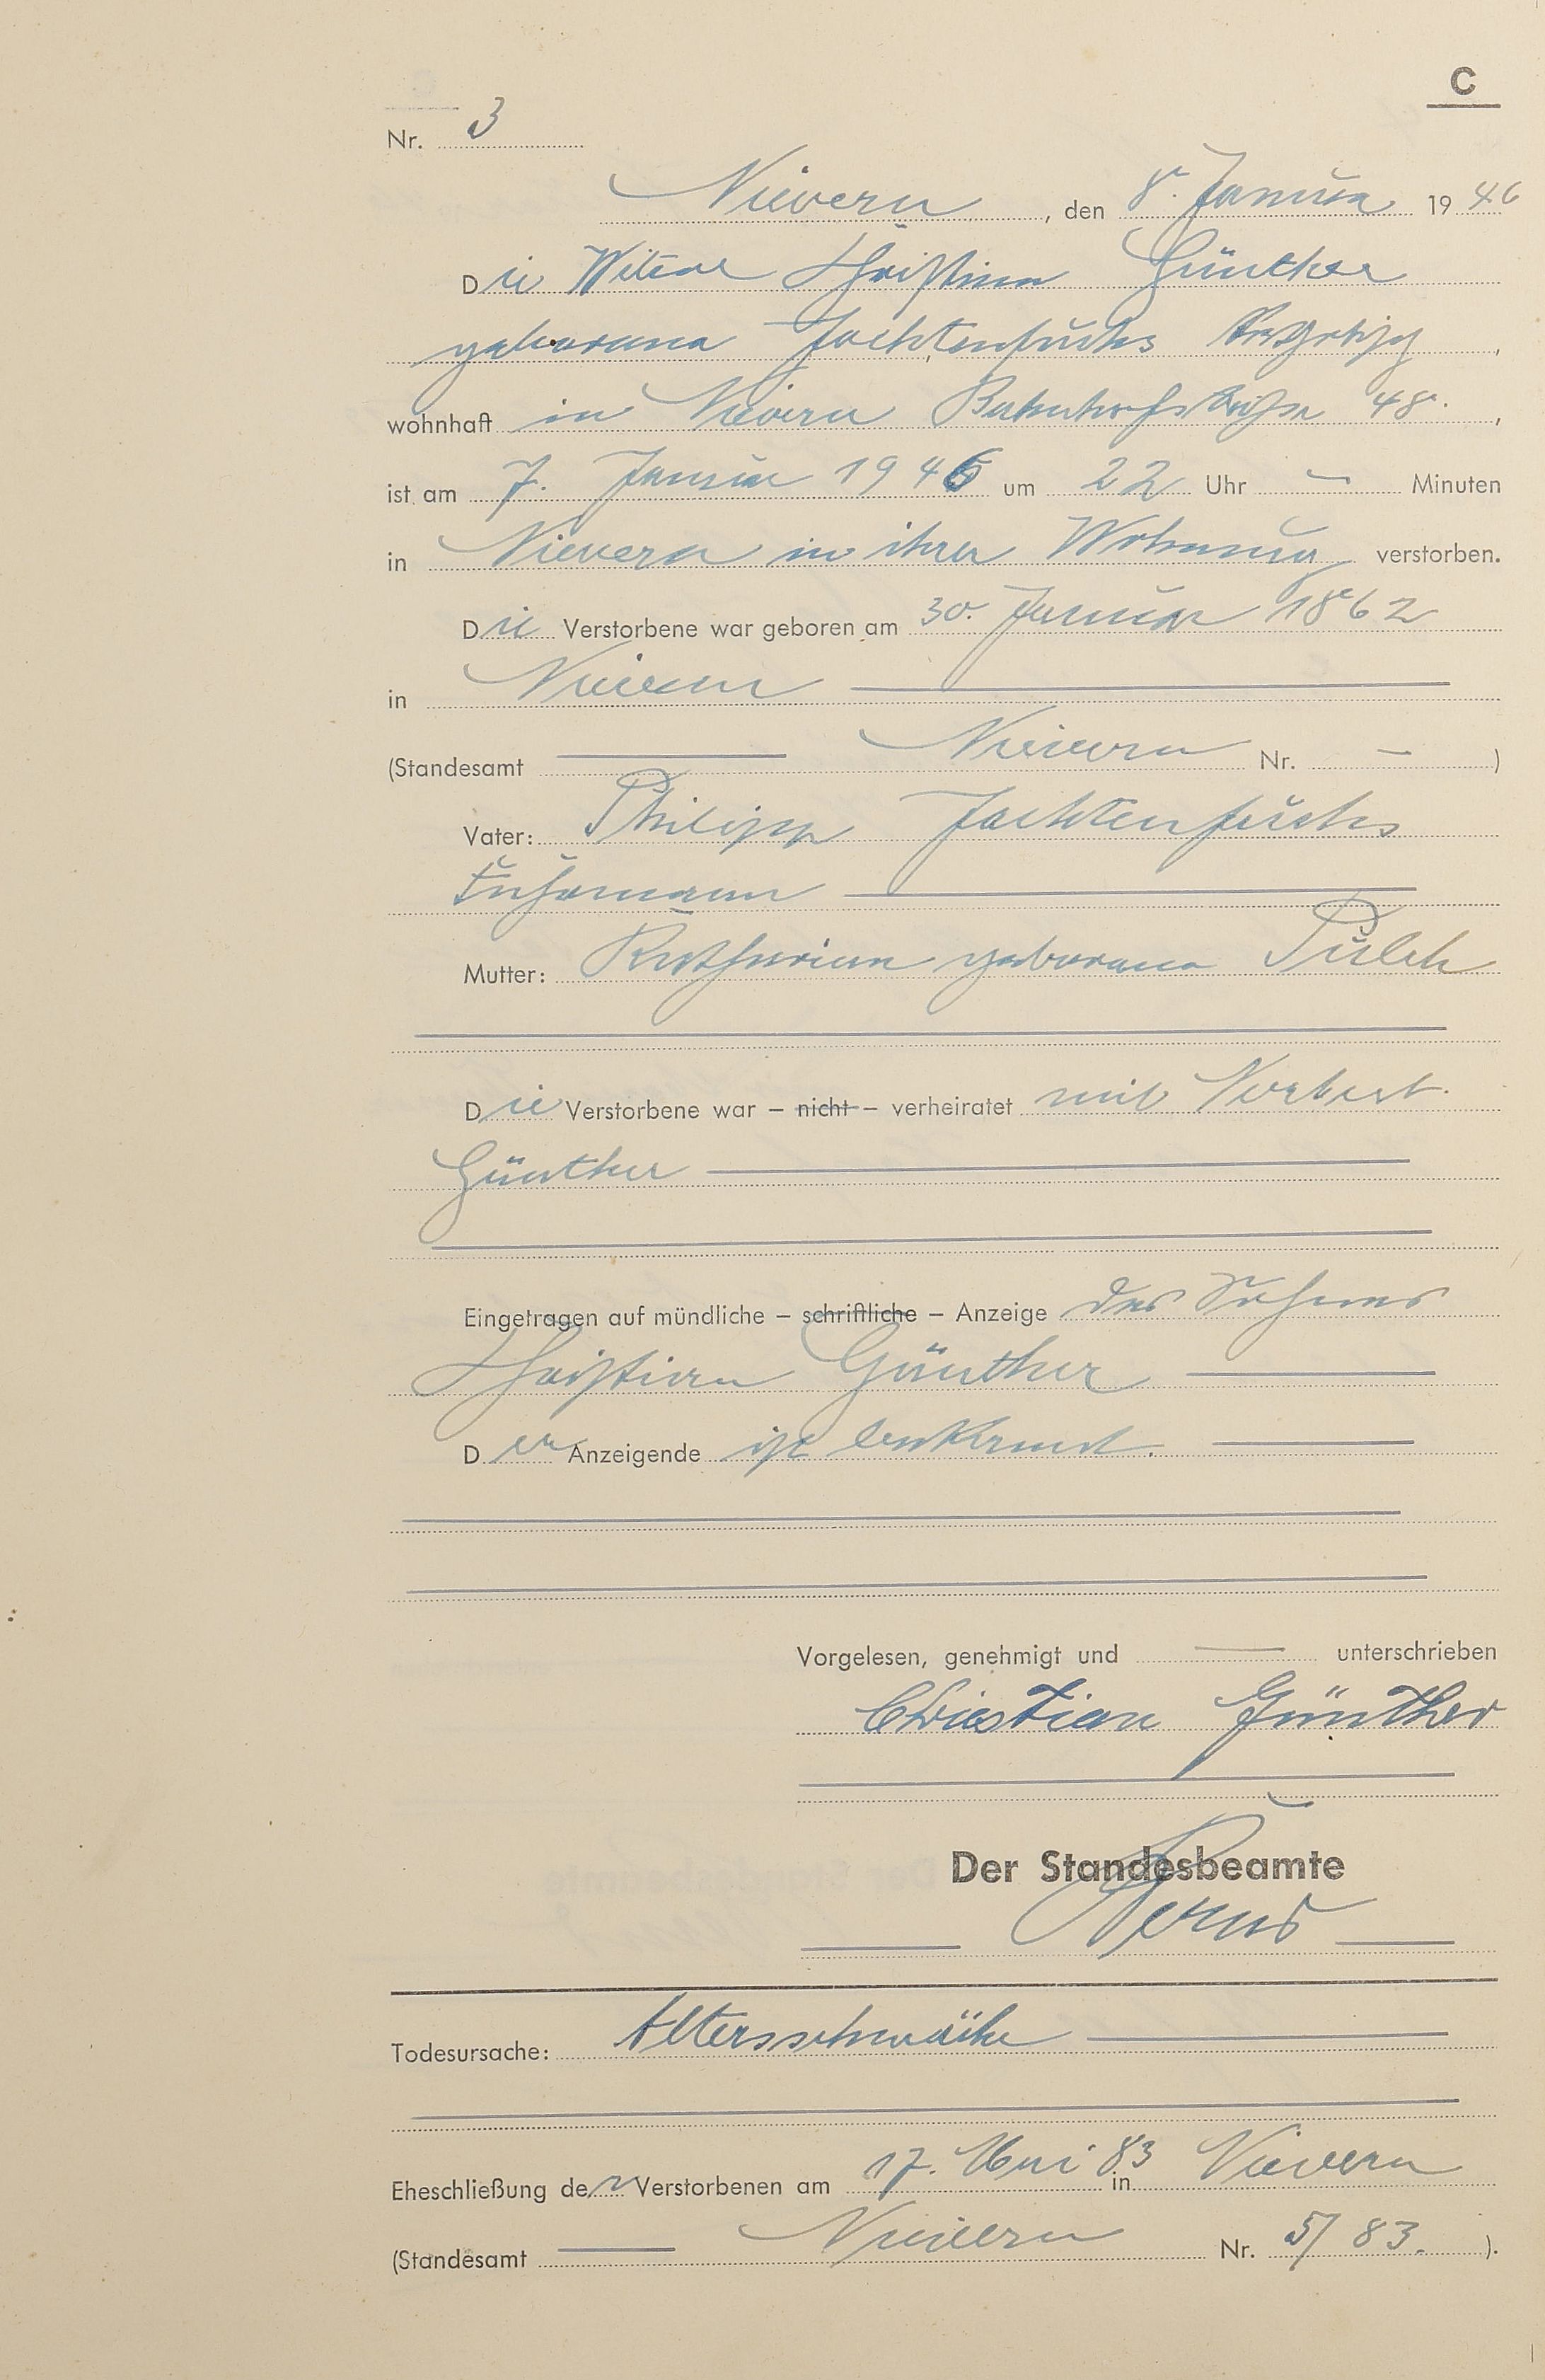 C
Nr. 3
Nievern, den 8. Januar 1946
Die Witwe Christina Günther
geborene Jachtenfuchs
wohnhaft in Nievern Bahnhofstraße 48.,
ist am 7. Januar 1946 um 22 Uhr — Minuten
in Nievern in ihrer Wohnung verstorben.
Die Verstorbene war geboren am 30. Januar 1862
in Nievern
(Standesamt — Nievern Nr. — )
Vater: Philipp Jachtenfuchs
Fuhrmann
Mutter: Katharina geborene Pulch
Die Verstorbene war – nicht – verheiratet mit Norbert
Günther
Eingetragen auf mündliche – schriftliche – Anzeige des Sohnes
Christian Günther
Der Anzeigende ist bekannt.
Vorgelesen, genehmigt und — unterschrieben
Christian Günther
Der Standesbeamte
Todesursache: Altersschwäche
Eheschließung der Verstorbenen am 17. Mai 83 in Nievern
(Standesamt — Nievern Nr. 5/83. ).